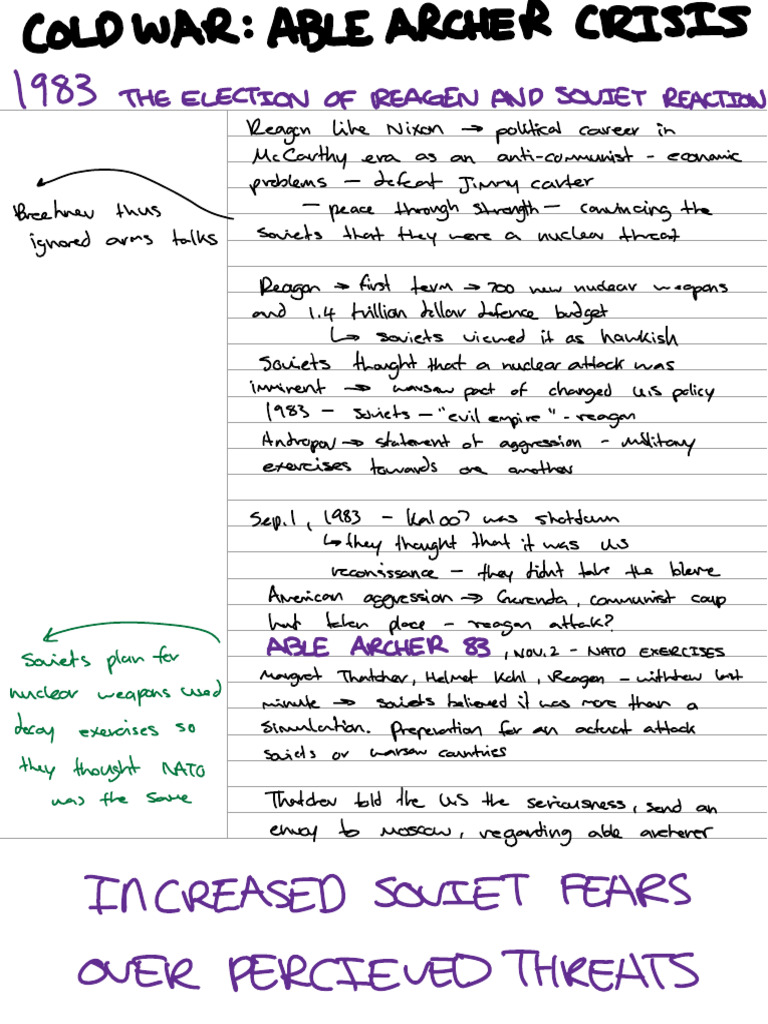 COLD WAR: ABLE ARCHER CRISIS
1983 THE ELECTION OF REAGEN AND SOVIET REACTION
Reagen like Nixon → political career in
McCarthy era as an anti-communist - economic
problems - defeat Jimmy carter
- peace through strength - convincing the
soviets that they were a nuclear threat
Brezhnev thus
ignored arms talks
Reagan → first term → 700 new nuclear weapons
and 1.4 trillion dollar defence budget
↳ soviets viewed it as hawkish
Soviets thought that a nuclear attack was
imminent → warsaw pact of changed U.S policy
1983 - soviets - "evil empire" - reagan
Andropov → statement of aggression - military
exercises towards one another
Sep. 1, 1983 - Kal 007 was shotdown
↳ they thought that it was US
reconissance - they didnt take the blame
American aggression → Grenada, communist coup
had taken place - reagan attak?
ABLE ARCHER 83, NOV. 2 - NATO EXERCISES
Margret Thatcher, Helmet Kohl, Reagen - withdrew last
minute → soviets believed it was more than a
simulation. Preperation for an actual attack
soviets or warsaw countries
Soviets plan for
nuclear weapons used
decoy exercises so
they thought NATO
was the same
Thatcher told the US the seriousness, send an
envoy to Moscow, regarding able archerer
INCREASED SOVIET FEARS
OVER PERCIEVED THREATS